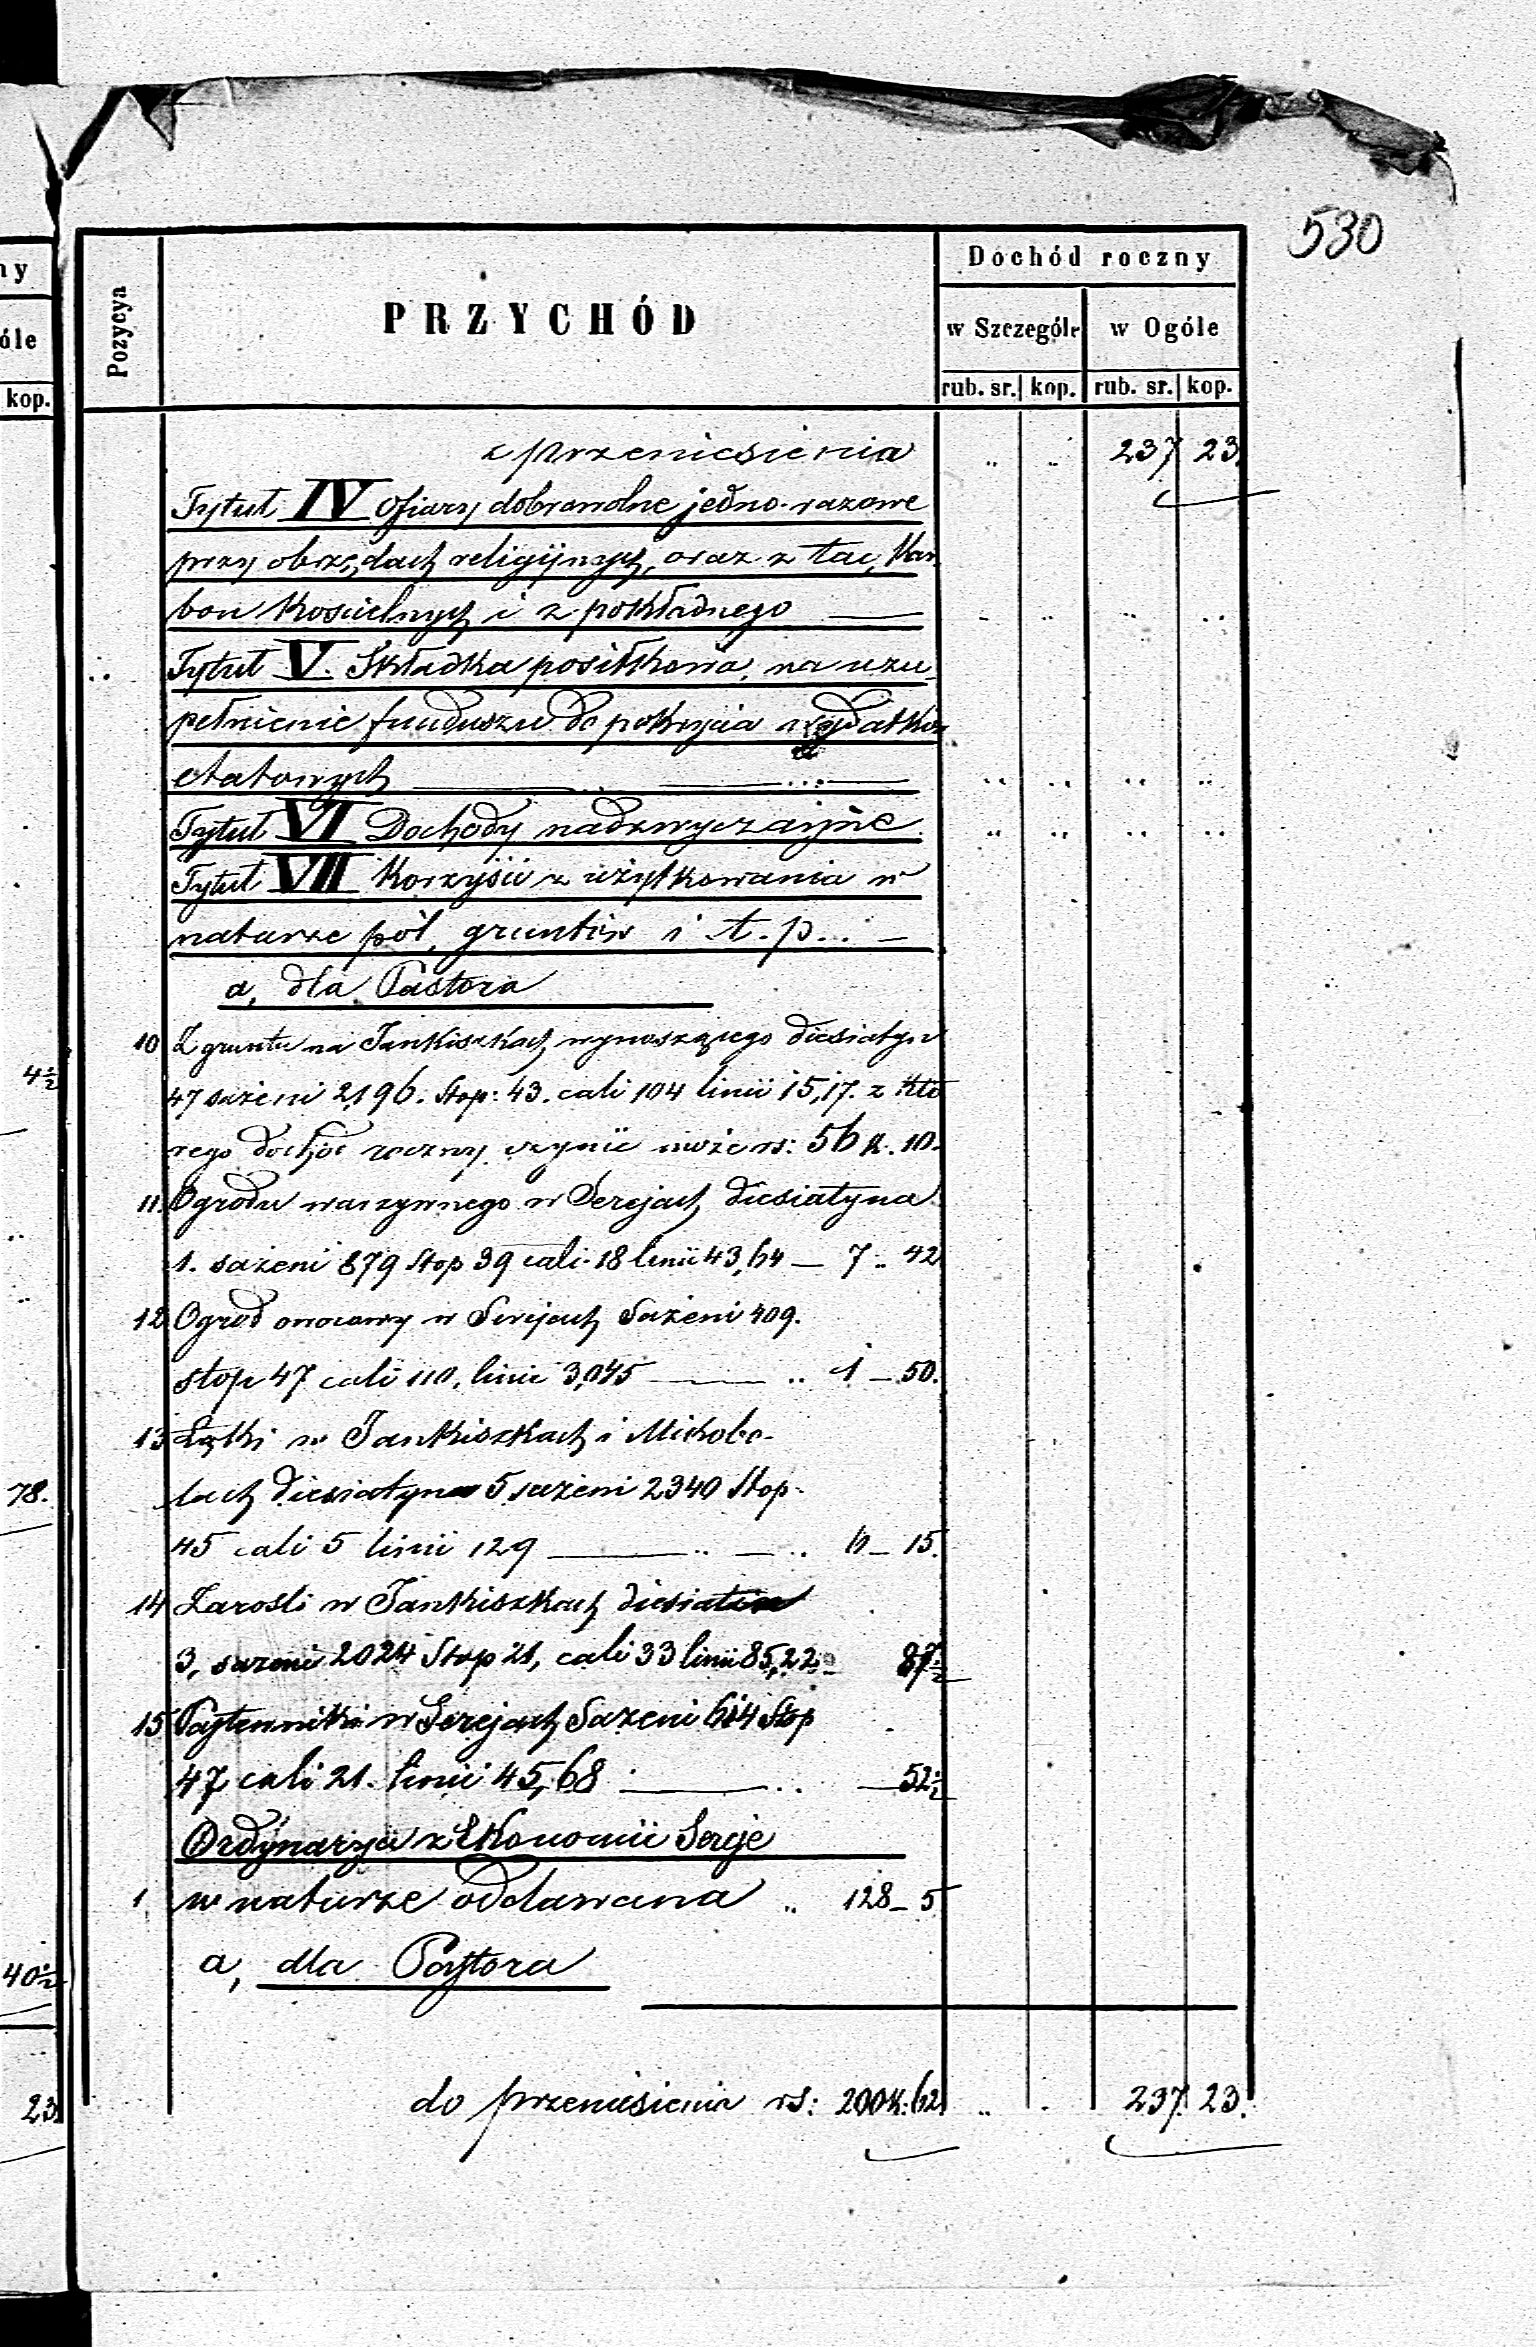 530
ny
óle
kop.
4½
78.
40½
23
Pozycya
PRZYCHÓD
Dochód roczny
w Szczególe
w Ogóle
rub. sr.
kop.
rub. sr.
kop.
z przeniesienia .. .. 237 23.
Tytuł IV Ofiary dobrowolne jedno-razowe
przy obrzędach religijnych, oraz z tac, Kar
bon Kościelnych i z pokładnego
Tytuł V. Składka posiłkowa, na uzu
pełnienie funduszu do pokrycia wydatków
etatowych
Tytuł VI Dochody nadzwyczajne
Tytuł VII Korzyści z użytkowania w
naturze pól, gruntów i t. p. .. —
a, dla Pastora
10 Z gruntu na Jankiszkach wynoszącego diesiatyn
47 sażeni 2196. Stop: 43. cali 104 linii 15,17. z któ
rego dochód roczny czynić może rs: 56 k. 10.
11. Ogrodu warzywnego w Serejach diesiatyna
1. sażeni 879 Stop 39 cali 18 linii 43,64 — 7 .. 42
12 Ogród owocowy w Serejach Sażeni 409.
stop 47 cali 110, linii 3,045 — .. 1 — 50.
13 Łąki w Jankiszkach i Michobo-
tach diesiatyna 5 sażeni 2340 Stop
45 cali 5 linii 129 — .. — .. 6 — 15.
14 Zarośli w Jankiszkach diesiatin
3, sażeni 2024 Stop 21, cali 33 linii 85,22 — 87½
15 w Serejach Sażeni 614 Stop
47 cali 21. linii 45,68 — .. — 52½
Ordynarya z Ekonomii Sereje
1 w naturze oddawana .. 128 — 5
a, dla Pastora
do przeniesienia rs: 200 k: 62 .. . 237. 23.